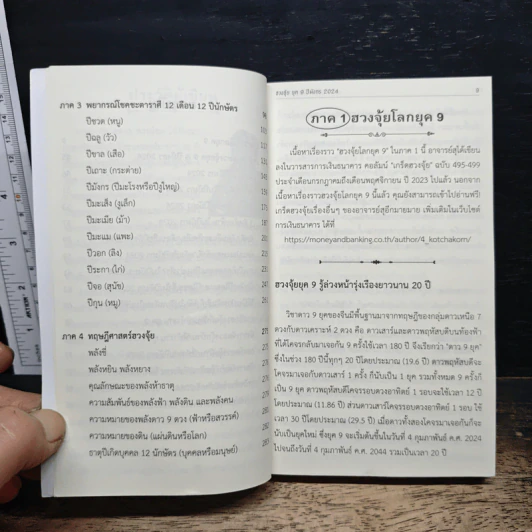 ภาค 3 พยากรณ์โชคชะตาราศี 12 เดือน 12 ปีนักษัตร
ปีชวด (หนู)
ปีฉลู (วัว)
ปีขาล (เสือ)
ปีเถาะ (กระต่าย)
ปีมังกร (ปีมะโรงหรือปีงูใหญ่)
ปีมะเส็ง (งูเล็ก)
ปีมะเมีย (ม้า)
ปีมะแม (แพะ)
ปีวอก (ลิง)
ปีระกา (ไก่)
ปีจอ (สุนัข)
ปีกุน (หมู)
ภาค 4 ทฤษฎีศาสตร์ฮวงจุ้ย
พลังชี่
พลังหยิน พลังหยาง
คุณลักษณะของพลังห้าธาตุ
ความสัมพันธ์ของพลังฟ้า พลังดิน และพลังคน
ความหมายของพลังดาว 9 ดวง (ฟ้าหรือสวรรค์)
ความหมายของดิน (แผ่นดินหรือโลก)
ธาตุปีเกิดบุคคล 12 นักษัตร (บุคคลหรือมนุษย์)
ฮวงจุ้ย ยุค 9 ปีมังกร 2024
ภาค 1 ฮวงจุ้ยโลกยุค 9
เนื้อหาเรื่องราว "ฮวงจุ้ยโลกยุค 9" ในภาค 1 นี้ อาจารย์สุได้เขียน
ลงในวารสารการเงินธนาคาร คอลัมน์ "เกร็ดฮวงจุ้ย" ฉบับ 495-499
ประจำเดือนกรกฎาคมถึงเดือนพฤศจิกายน ปี 2023 ไปแล้ว นอกจาก
เนื้อหาเรื่องราวฮวงจุ้ยโลกยุค 9 นี้แล้ว คุณยังสามารถเข้าไปอ่านฟรี!
เกร็ดฮวงจุ้ยเรื่องอื่นๆ ของอาจารย์สุอีกมายมาย เพิ่มเติมในเว็บไซต์
การเงินธนาคาร ได้ที่
https://moneyandbanking.co.th/author/4_kotchakorn/
ฮวงจุ้ยยุค 9 รู้ล่วงหน้ารุ่งเรืองยาวนาน 20 ปี
วิชาดาว 9 ยุคของจีนมีพื้นฐานมาจากทฤษฎีของกลุ่มดาวเหนือ 7
ดวงกับดาวเคราะห์ 2 ดวง คือ ดาวเสาร์และดาวพฤหัสบดีบนท้องฟ้า
ที่ได้โคจรกลับมาเจอกัน 9 ครั้งใช้เวลา 180 ปี จึงเรียกว่า "ดาว 9 ยุค"
ซึ่งในช่วง 180 ปีนี้ทุกๆ 20 ปีโดยประมาณ (19.6 ปี) ดาวพฤหัสบดีจะ
โคจรมาเจอกันกับดาวเสาร์ 1 ครั้ง ก็นับเป็น 1 ยุค รวมทั้งหมด 9 ครั้งก็
เป็น 9 ยุค ดาวพฤหัสบดีโคจรรอบดวงอาทิตย์ 1 รอบจะใช้เวลา 12 ปี
โดยประมาณ (11.86 ปี) ส่วนดาวเสาร์โคจรรอบดวงอาทิตย์ 1 รอบ ใช้
เวลา 30 ปีโดยประมาณ (29.5 ปี) เมื่อดาวทั้งสองโคจรมาเจอกันก็จะ
นับเป็นยุคใหม่ ซึ่งยุค 9 จะเริ่มต้นขึ้นในวันที่ 4 กุมภาพันธ์ ค.ศ. 2024
ไปจนถึงวันที่ 4 กุมภาพันธ์ ค.ศ. 2044 รวมเป็นเวลา 20 ปี